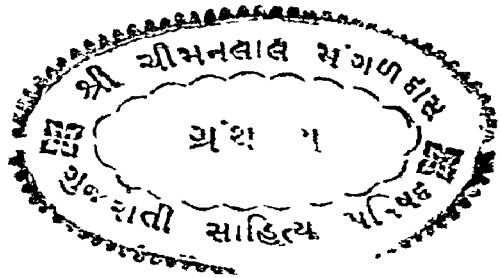 શ્રી ચીમનલાલ મંગળદાસ
ગ્રંથ
ગુજરાતી સાહિત્ય પરિષદ